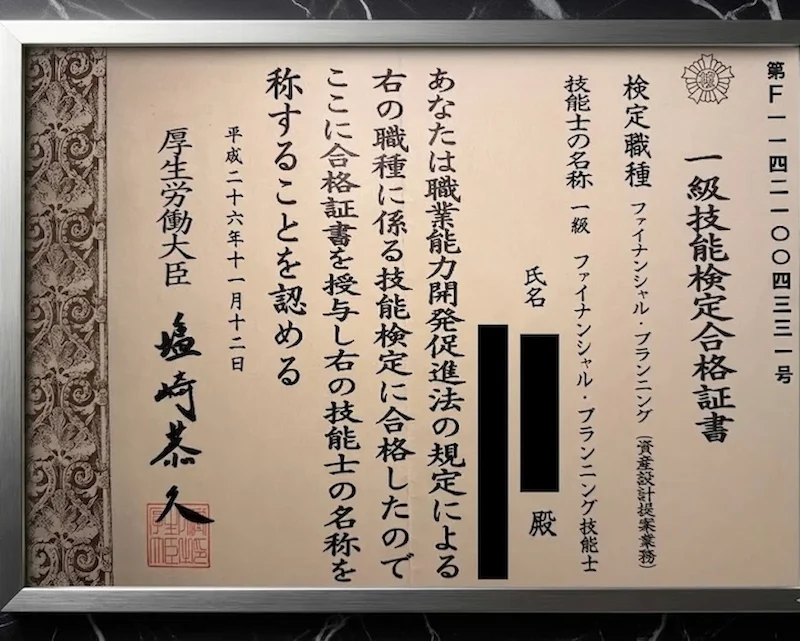 第F一一四二一〇〇四三三一号
一級技能検定合格証書
検定職種 ファイナンシャル・プランニング(資産設計提案業務)
技能士の名称 一級 ファイナンシャル・プランニング技能士
氏名 殿
あなたは職業能力開発促進法の規定による
右の職種に係る技能検定に合格したので
ここに合格証書を授与し右の技能士の名称を
称することを認める
平成二十六年十一月十二日
厚生労働大臣 塩崎恭久